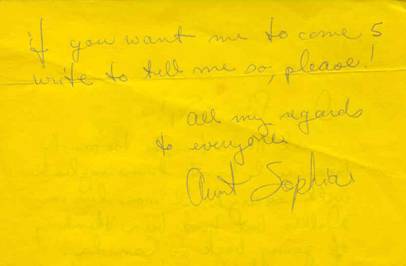 if you want me to come 5
write to tell me so, please!
all my regards
to everyone
Aunt Sophia